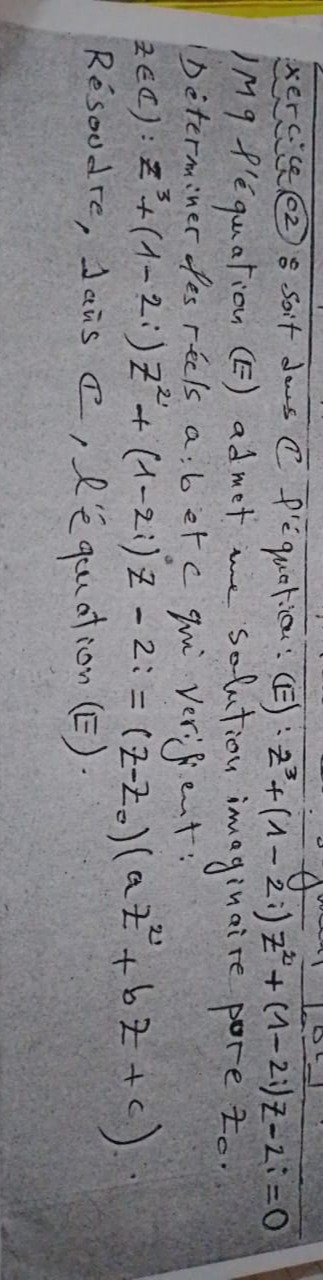 xercice 02 : soit dans C l'équation: (E): z³+(1-2i)z²+(1-2i)z-2i=0
) Mq l'équation (E) admet une solution imaginaire pure z₀.
) Déterminer des réels a; b et c qui vérifient:
z∈C): z³+(1-2i)z²+(1-2i)z-2i=(z-z₀)(az²+bz+c).
Résoudre, dans C, l'équation (E).